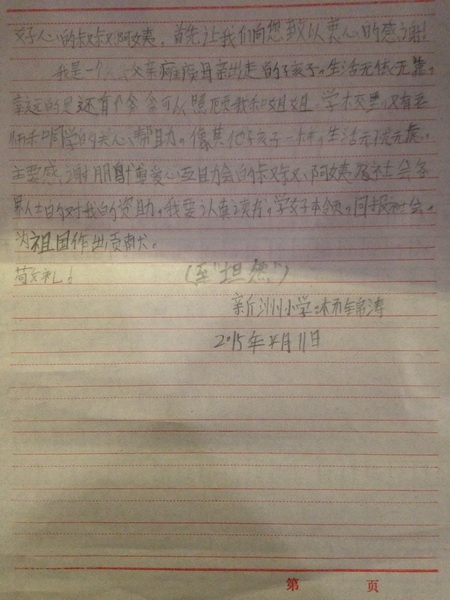 好心的叔叔阿姨,首先让我们向您致以衷心的感谢!
我是一个父亲 母亲出走的孩子。生活无依无靠。
幸运的是还有爷爷可以照顾我和姐姐。学校里,又有老
师和同学的关心、帮助。像其他孩子一样,生活无忧无虑。
主要感谢朋 爱心互助会的叔叔、阿姨和社会各
界人士的对我的资助。我要认真读书,学好本领。回报社会。
为祖国作出贡献。
敬礼!
新洲小学
2015年4月11日
第 页